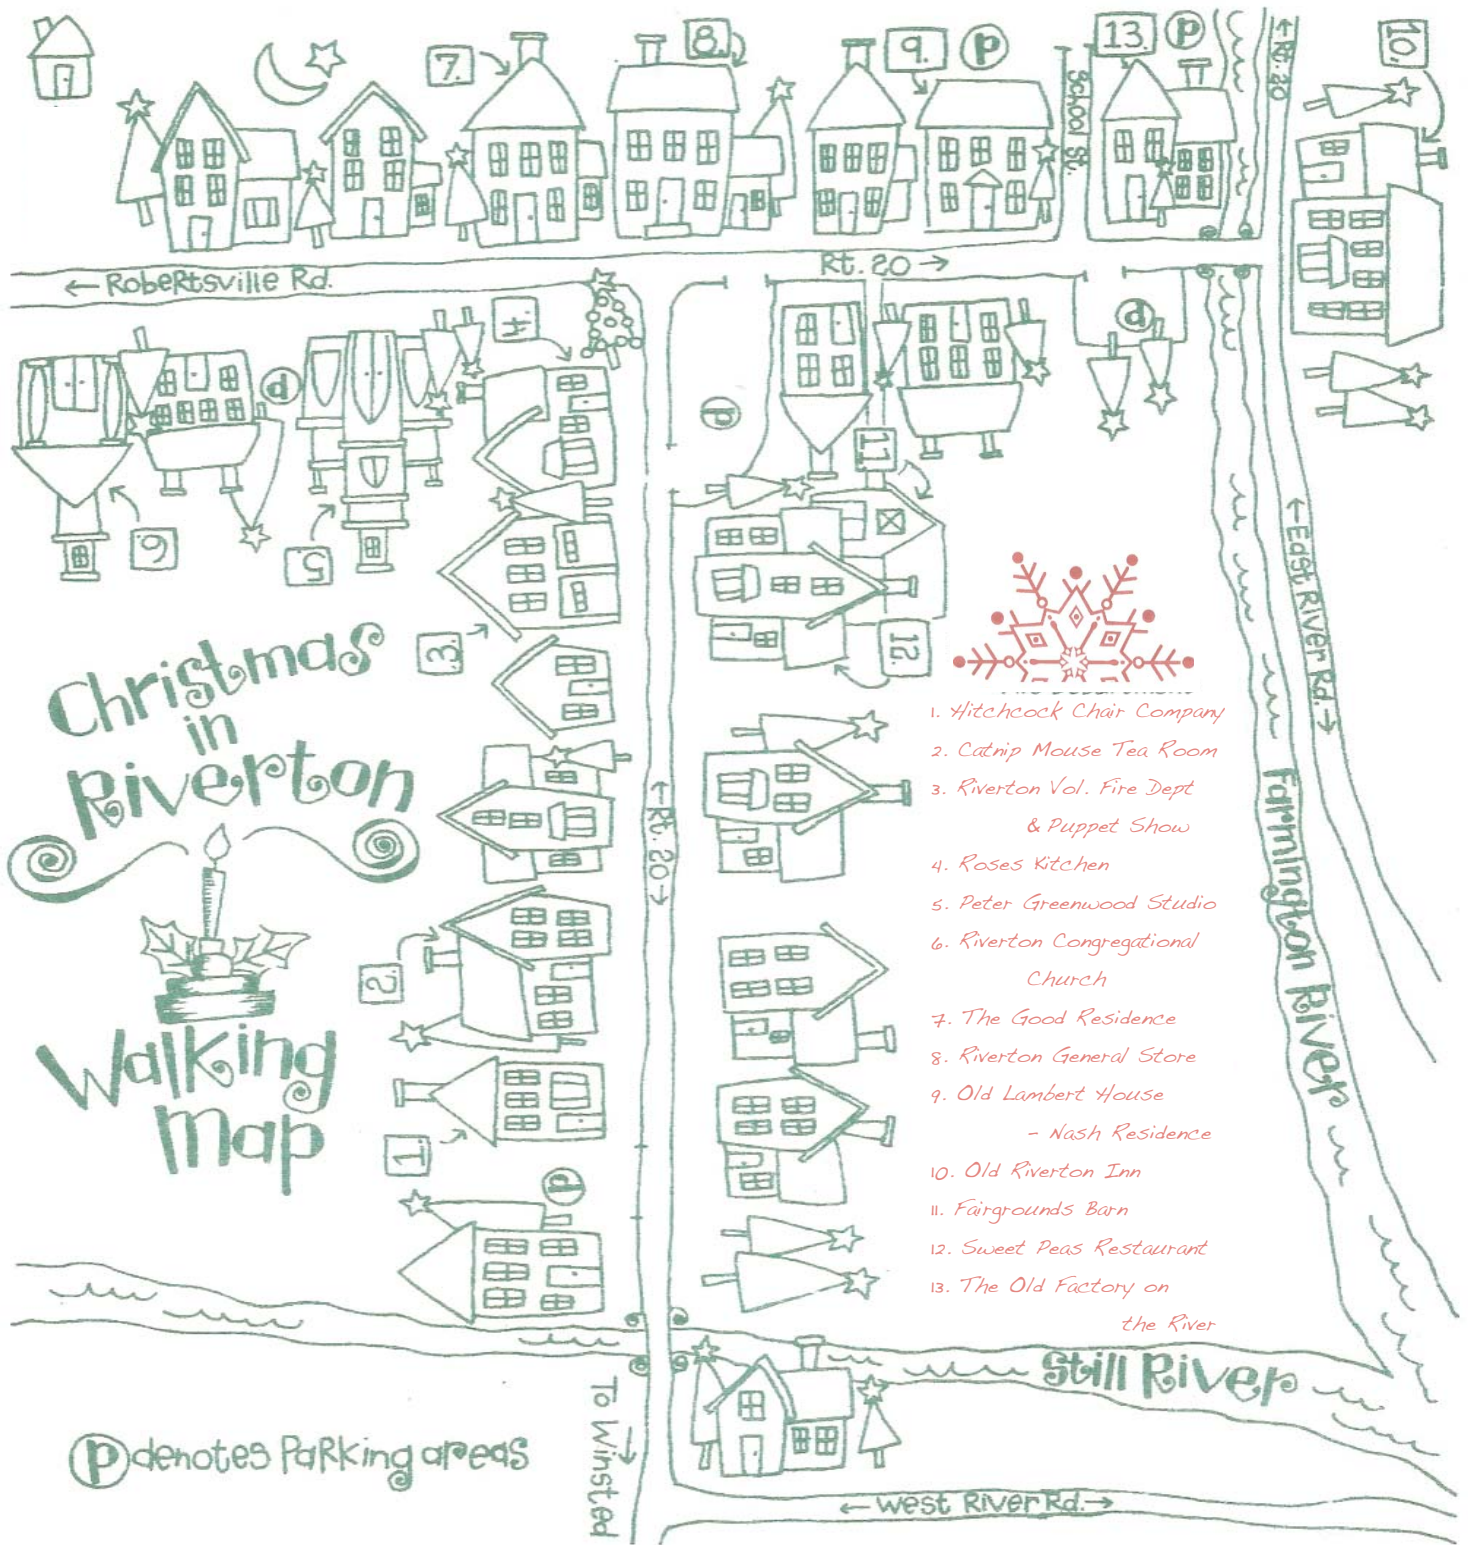 7.
8.
9.
P
13.
P
10.
School St.
← Rt. 20
← Robertsville Rd.
Rt. 20 →
4.
P
P
P
11.
6.
5.
3.
12.
← East River Rd. →
Christmas
in
Riverton
← Rt. 20 →
1. Hitchcock Chair Company
2. Catnip Mouse Tea Room
3. Riverton Vol. Fire Dept
& Puppet Show
4. Roses Kitchen
5. Peter Greenwood Studio
6. Riverton Congregational
Church
7. The Good Residence
8. Riverton General Store
9. Old Lambert House
- Nash Residence
10. Old Riverton Inn
11. Fairgrounds Barn
12. Sweet Peas Restaurant
13. The Old Factory on
the River
Farmington River
2.
Walking
Map
1.
P
Still River
To Winsted →
P denotes Parking areas
← West River Rd. →